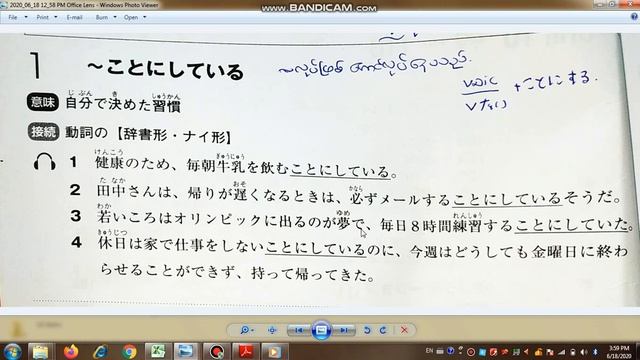 2020_06_18 12_58 PM Office Lens - Windows Photo Viewer
www.BANDICAM.com
File Print E-mail Burn Open
1 ～ことにしている
意味 自分で決めた習慣
じぶん き しゅうかん
接続 動詞の【辞書形・ナイ形】
けんこう ぎゅうにゅう
1 健康のため、毎朝牛乳を飲むことにしている。
たなか おそ かなら
2 田中さんは、帰りが遅くなるときは、必ずメールすることにしているそうだ。
わか ゆめ れんしゅう
3 若いころはオリンピックに出るのが夢で、毎日8時間練習することにしていた。
きゅうじつ
4 休日は家で仕事をしないことにしているのに、今週はどうしても金曜日に終わ
らせることができず、持って帰ってきた。
+ことにする
EN
3:59 PM
6/18/2020